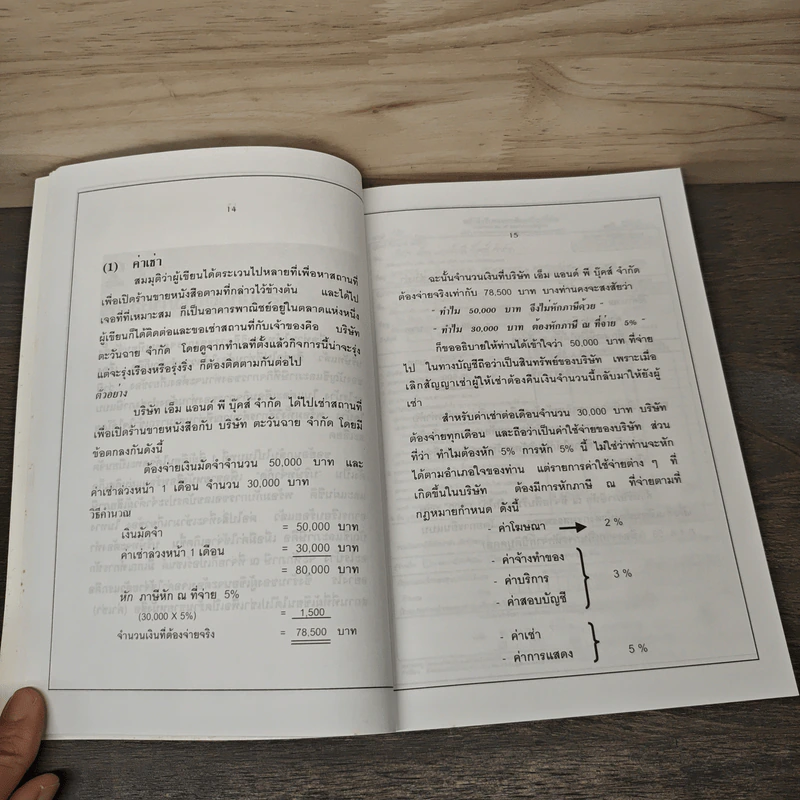 14
(1) ค่าเช่า
สมมุติว่าผู้เขียนได้ตระเวนไปหลายที่เพื่อหาสถานที่
เพื่อเปิดร้านขายหนังสือตามที่กล่าวไว้ข้างต้น และได้ไป
เจอที่ที่เหมาะสม ก็เป็นอาคารพาณิชย์อยู่ในตลาดแห่งหนึ่ง
ผู้เขียนก็ได้ติดต่อและขอเช่าสถานที่กับเจ้าของคือ บริษัท
ตะวันฉาย จำกัด โดยดูจากทำเลที่ตั้งแล้วกิจการนี้น่าจะรุ่ง
แต่จะรุ่งเรืองหรือรุ่งริ่ง ก็ต้องติดตามกันต่อไป
ตัวอย่าง
บริษัท เอ็ม แอนด์ พี บุ๊คส์ จำกัด ได้ไปเช่าสถานที่
เพื่อเปิดร้านขายหนังสือกับ บริษัท ตะวันฉาย จำกัด โดยมี
ข้อตกลงกันดังนี้
ต้องจ่ายเงินมัดจำจำนวน 50,000 บาท และ
ค่าเช่าล่วงหน้า 1 เดือน จำนวน 30,000 บาท
วิธีคำนวณ
เงินมัดจำ = 50,000 บาท
ค่าเช่าล่วงหน้า 1 เดือน = 30,000 บาท
= 80,000 บาท
หัก ภาษีหัก ณ ที่จ่าย 5%
(30,000 X 5%) = 1,500
จำนวนเงินที่ต้องจ่ายจริง = 78,500 บาท
15
ฉะนั้นจำนวนเงินที่บริษัท เอ็ม แอนด์ พี บุ๊คส์ จำกัด
ต้องจ่ายจริงเท่ากับ 78,500 บาท บางท่านคงจะสงสัยว่า
" ทำไม 50,000 บาท จึงไม่หักภาษีด้วย "
" ทำไม 30,000 บาท ต้องหักภาษี ณ ที่จ่าย 5% "
ก็ขออธิบายให้ท่านได้เข้าใจว่า 50,000 บาท ที่จ่าย
ไป ในทางบัญชีถือว่าเป็นสินทรัพย์ของบริษัท เพราะเมื่อ
เลิกสัญญาเช่าผู้ให้เช่าต้องคืนเงินจำนวนนี้กลับมาให้ยังผู้
เช่า
สำหรับค่าเช่าต่อเดือนจำนวน 30,000 บาท บริษัท
ต้องจ่ายทุกเดือน และถือว่าเป็นค่าใช้จ่ายของบริษัท ส่วน
ที่ว่า ทำไมต้องหัก 5% การหัก 5% นี้ ไม่ใช่ว่าท่านจะหัก
ได้ตามอำเภอใจของท่าน แต่รายการค่าใช้จ่ายต่าง ๆ ที่
เกิดขึ้นในบริษัท ต้องมีการหักภาษี ณ ที่จ่ายตามที่
กฎหมายกำหนด ดังนี้
- ค่าโฆษณา → 2 %
- ค่าจ้างทำของ
- ค่าบริการ 3 %
- ค่าสอบบัญชี
- ค่าเช่า
- ค่าการแสดง 5 %